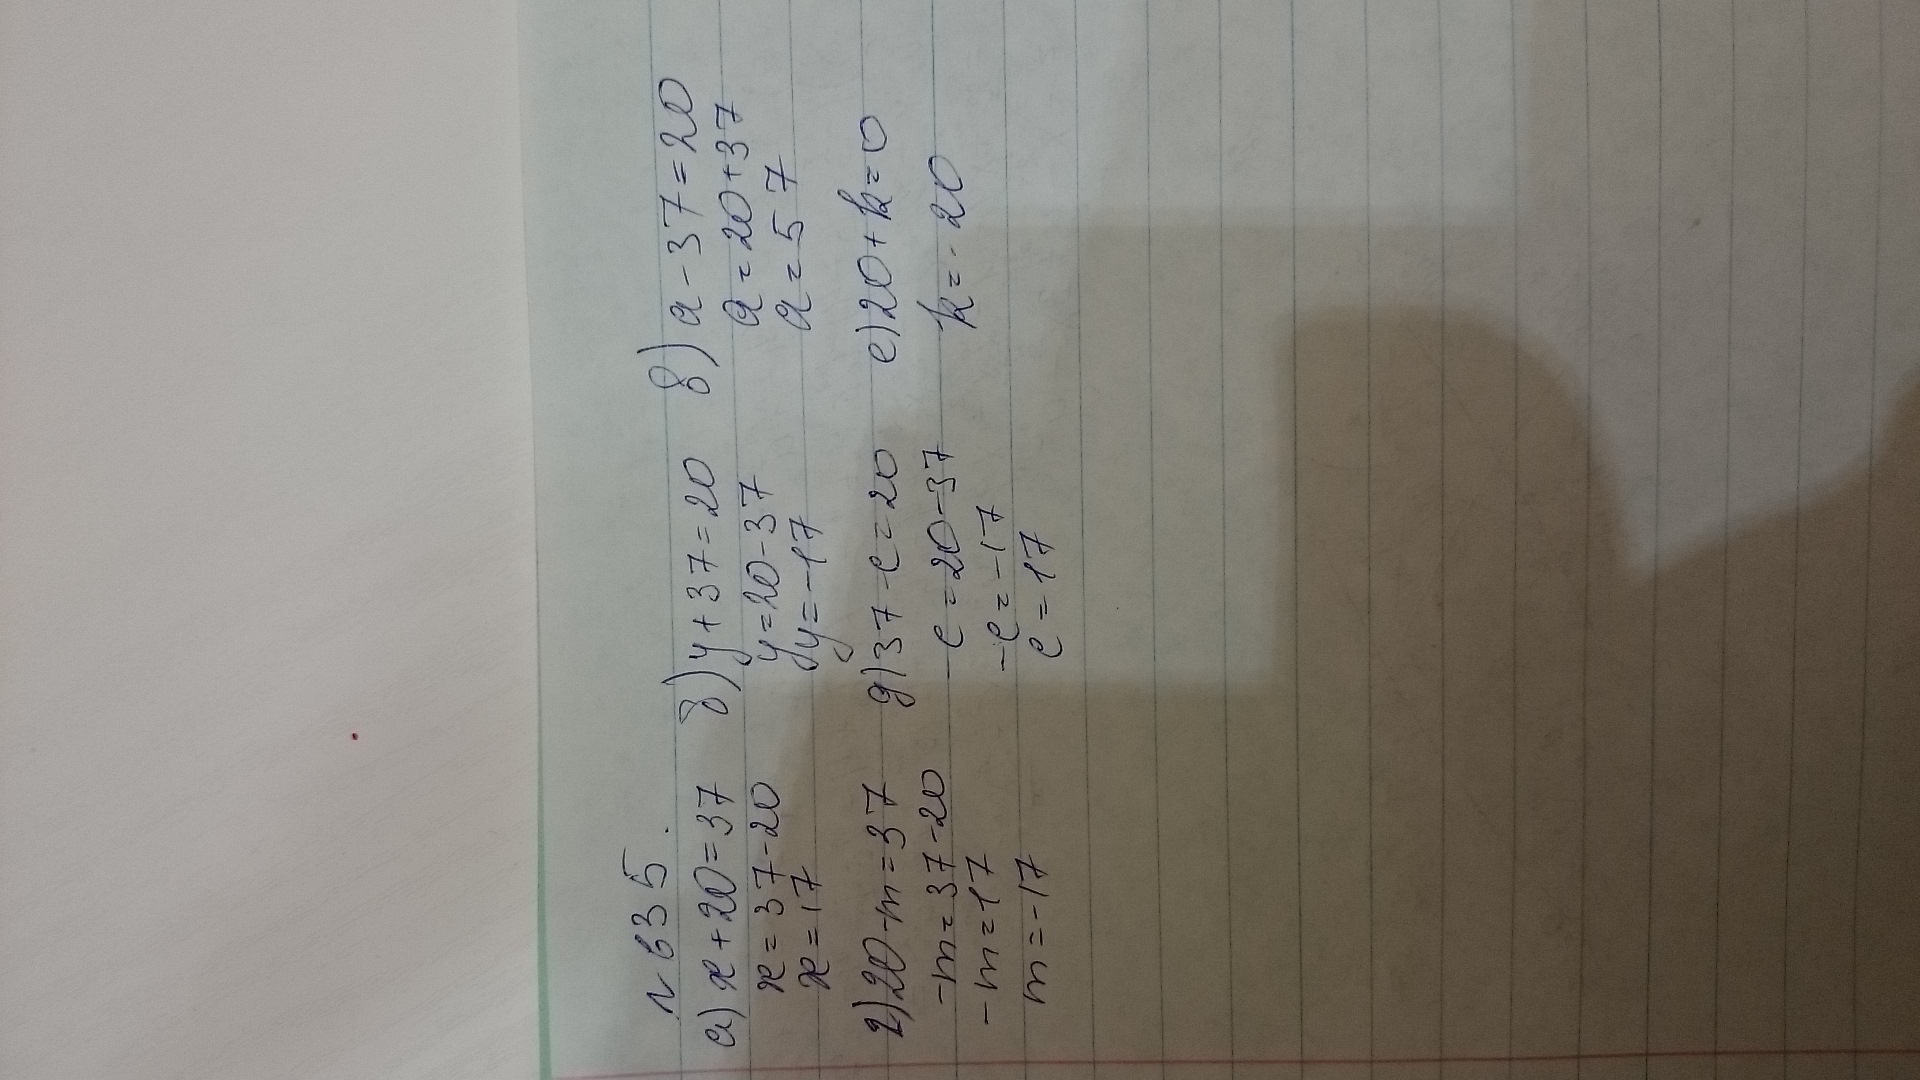 №635.
а) x+20=37 б) y+37=20 в) a-37=20
x=37-20 y=20-37 a=20+37
x=17 y=-17 a=57
г) 20-m=37 д) 37-c=20 е) 20+k=0
-m=37-20 -c=20-37 k=-20
-m=17 -c=-17
m=-17 c=17